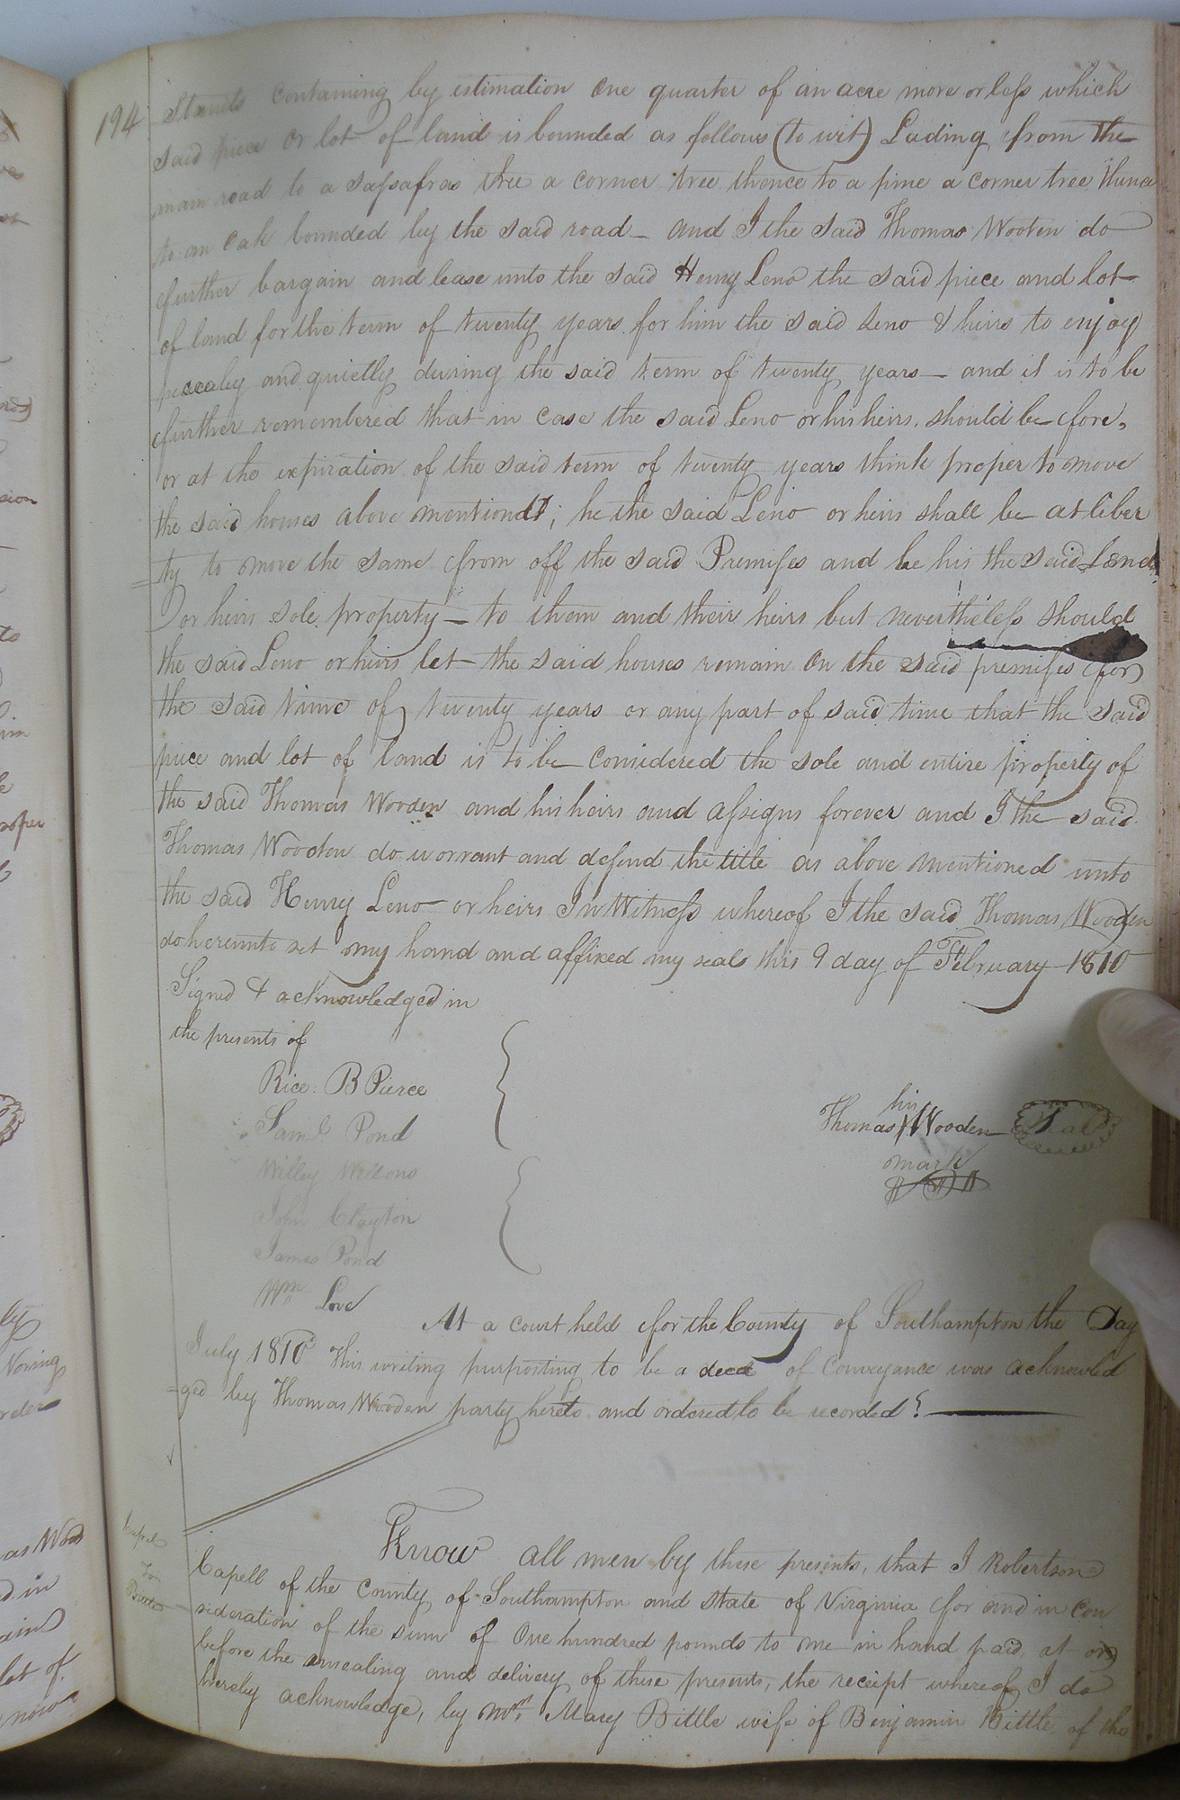 194
Stands containing by estimation One quarter of an acre more or less which
said piece Or lot of land is bounded as follows (to wit) Lading from the
main road to a sassafras tree a corner tree thence to a pine a corner tree thence
to an oak bounded by the said road - and I the said Thomas Wooten do
further bargain and lease unto the said Henry Leno the said piece and lot
of land for the term of twenty years for him the said Leno & heirs to enjoy
peaceably and quietly during the said term of twenty years - and it is to be
further remembered that in case the said Leno or his heirs should be fore,
or at the expiration of the said term of twenty years think proper to move
the said houses above mentiond; he the said Leno or heirs shall be at liber
=ty to move the same from off the said Premises and be his the said Leno
or heirs sole property - to them and their heirs but nevertheless should
the said Leno or heirs let the said houses remain on the said premises for
the said time of twenty years or any part of said time that the said
piece and lot of land is to be considered the sole and entire property of
the said Thomas Wooden and his heirs and assigns forever and I the said
Thomas Wooton do worrant and defend the title as above mentioned unto
the said Henry Leno or heirs In Witness whereof I the said Thomas Wooden
do hereunto set my hand and affixed my seals this 9 day of February 1810
Signed & acknowledged in
the presents of
Rice. B Pierce
Saml. Pond
Willey Wellons
John Clayton
James Pond
Wm Love
his
Thomas X Wooden Seal
mark
At a court held for the County of Southampton the Day
July 1810 This writing purposting to be a deed of Conveyance was acknowled
=ged by Thomas Wooden party hereto and ordered to be recorded
Capel
To
Bittle
Know all men by these presents, that I Robertson
Capell of the County of Southampton and State of Virginia for and in con
sideration of the sum of One hundred pounds to me in hand paid, at or
before the ensealing and delivery of these presents, the receipt whereof I do
hereby acknowledge, by Mrs. Mary Bittle wife of Benjamin Bittle of the